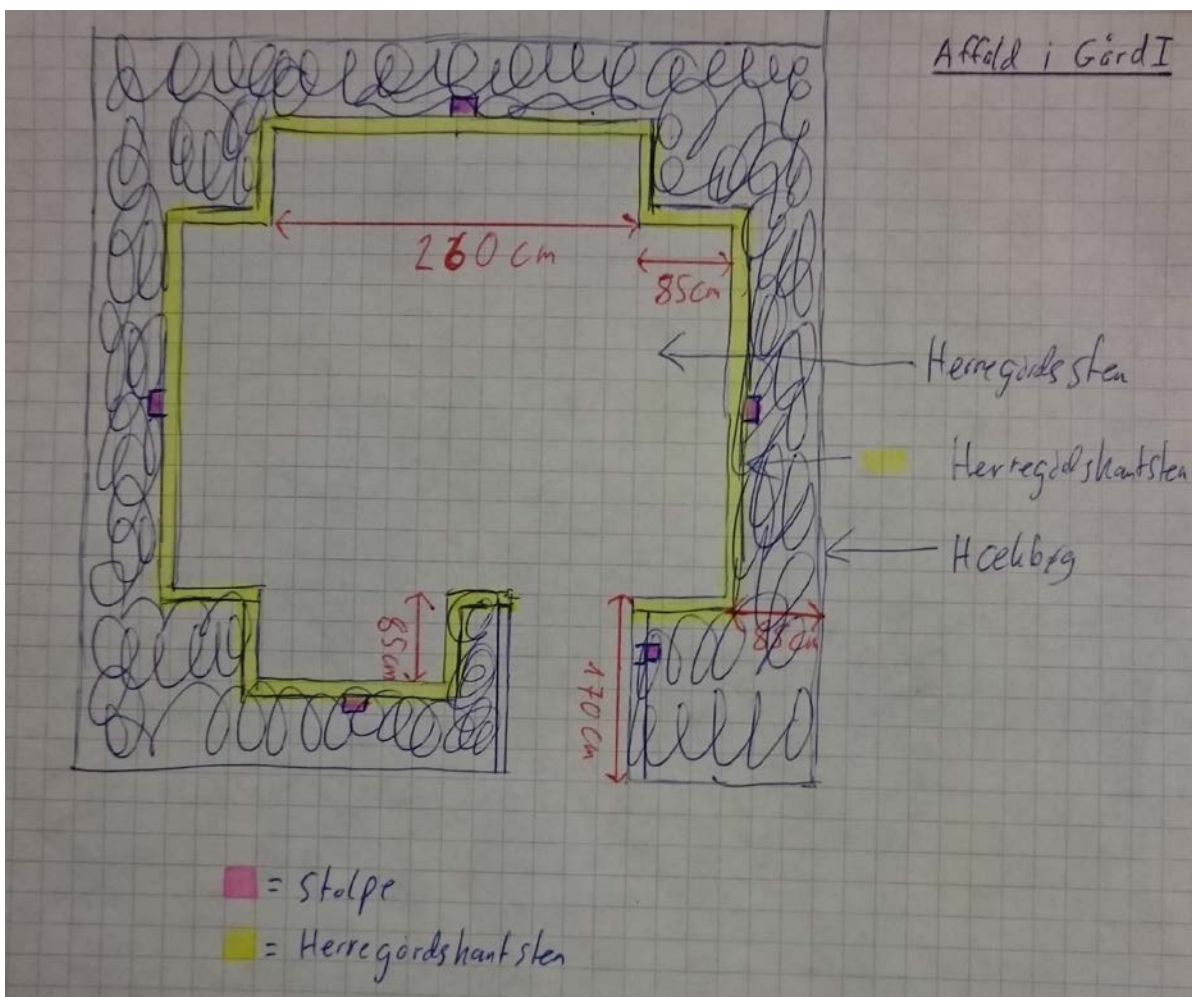 Affald i Gård I
260 cm
85cm
Herregårdssten
Herregårdskantsten
Hækbøg
85cm
88cm
170cm
= Stolpe
= Herregårdskantsten